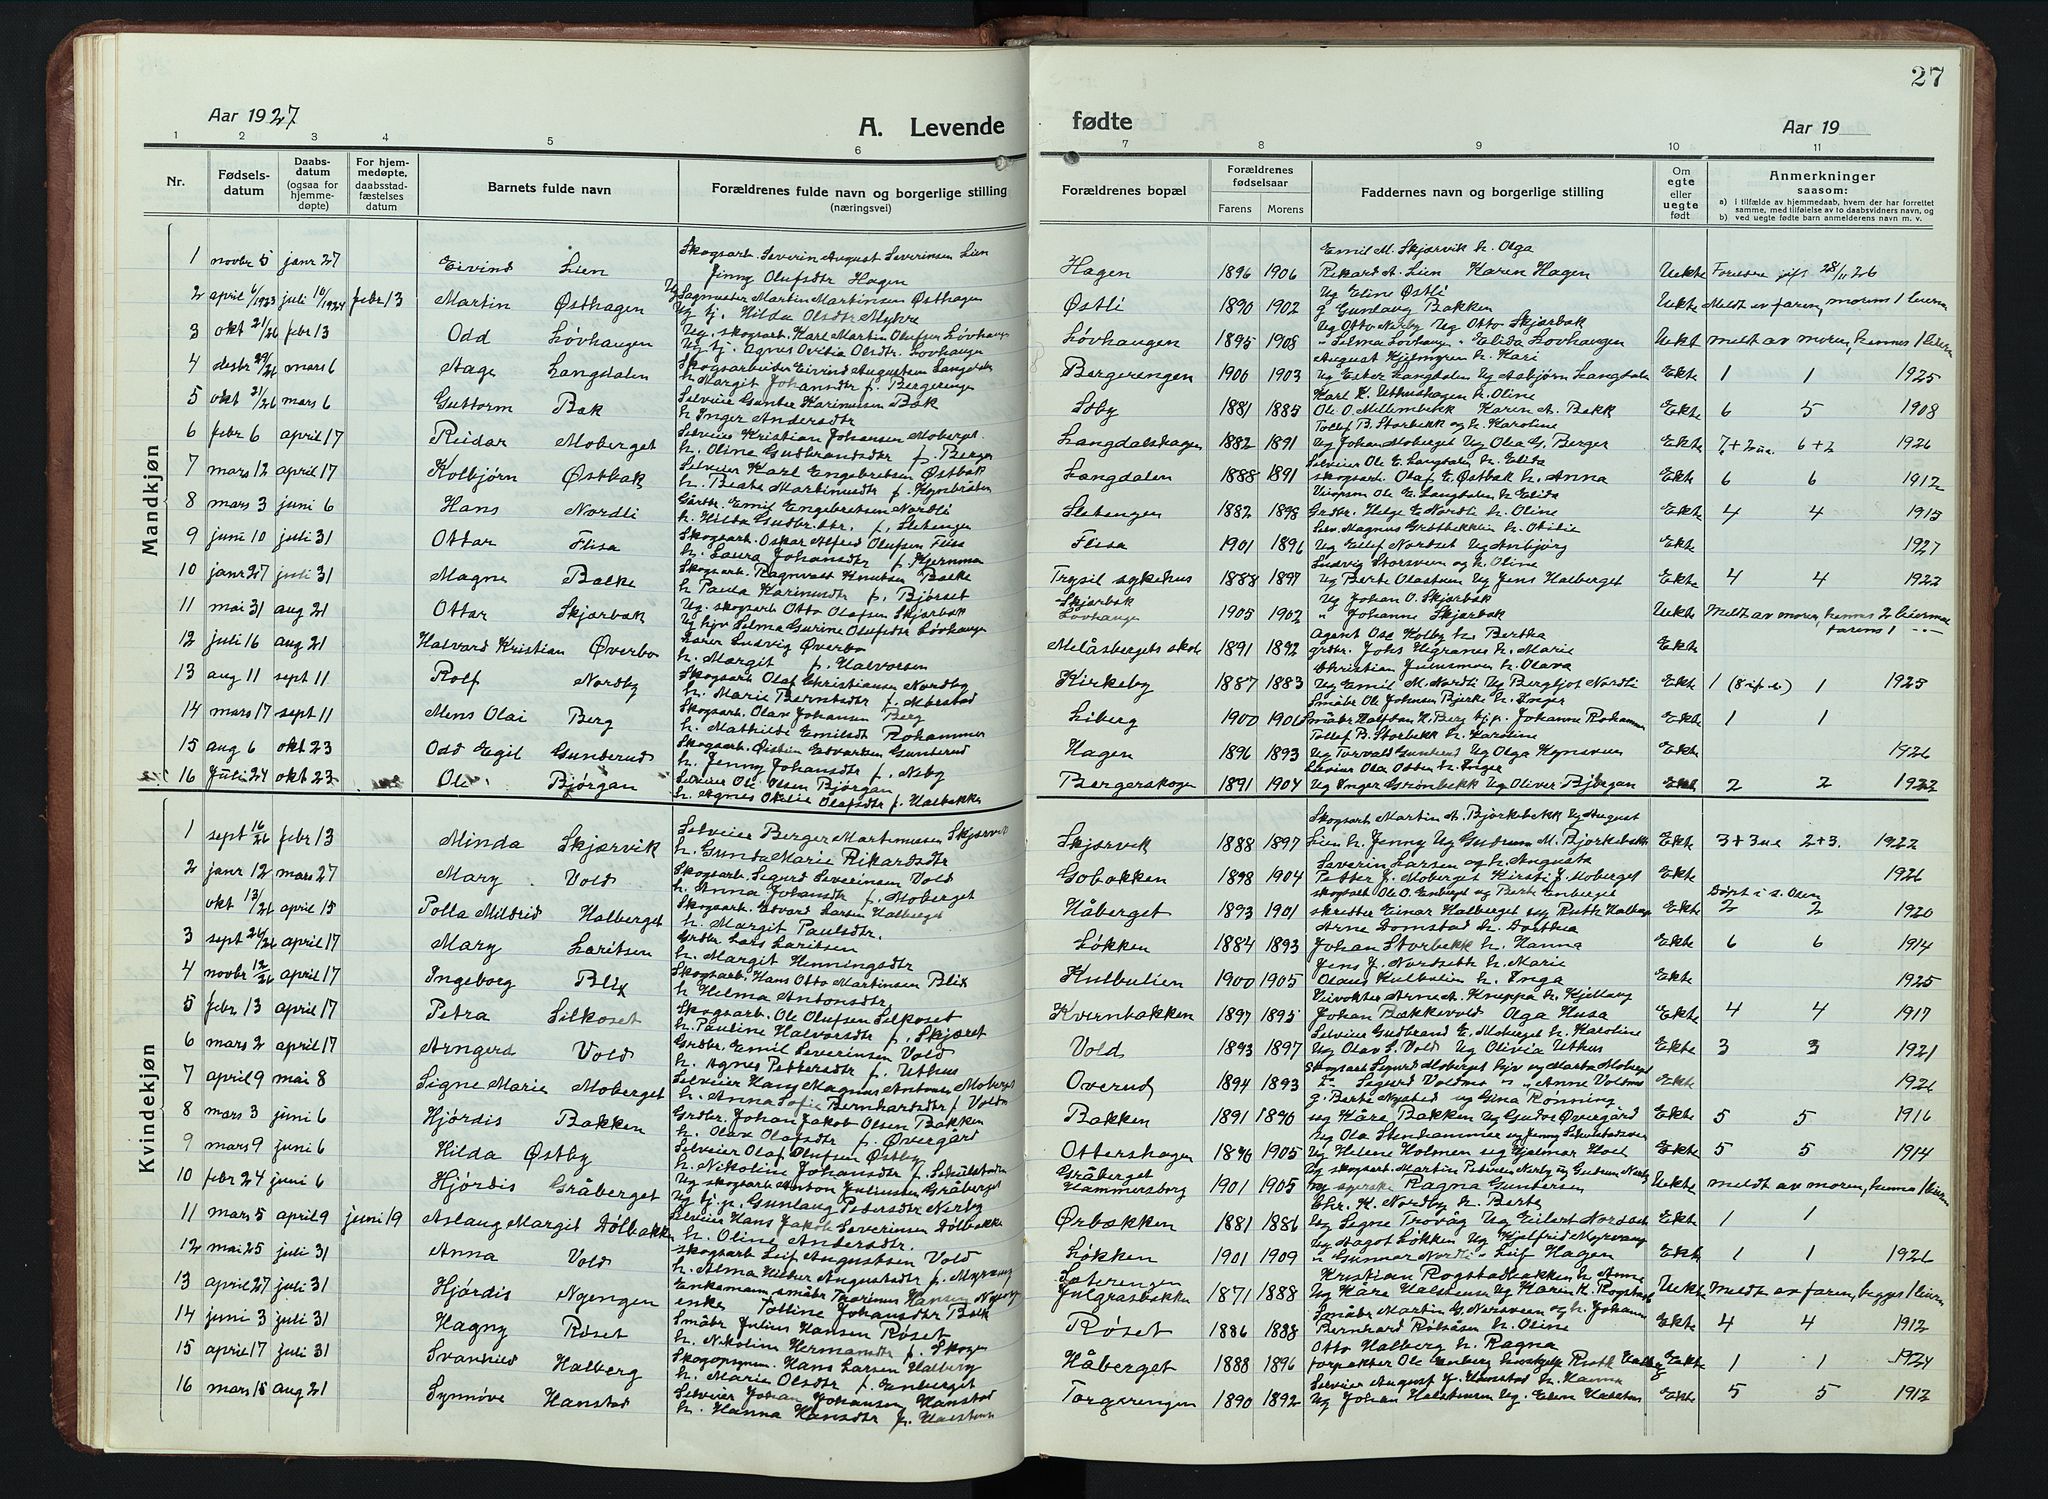 27
Aar 1927
A. Levende fødte
Aar 19
1 2 3 4 5 6 7 8 9 10 11
Nr.
Fødsels-datum
Daabs-datum (ogsaa for hjemme-døpte)
For hjem-medøpte, daabsstad-fæstelses datum
Barnets fulde navn
Forældrenes fulde navn og borgerlige stilling (næringsvei)
Forældrenes bopæl
Forældrenes fødselsaar
Farens Morens
Faddernes navn og borgerlige stilling
Om egte eller uegte født
Anmerkninger saasom:
a) i tilfælde av hjemmedaab, hvem der har forrettet samme, med tilføielse av to daabsvidners navn, og
b) ved uegte født barn anmelderens navn m. v.
Mandkjøn
1 novbr 5 janr 27 Eivind Lien Skogsarb. Severin August Severinsen Lien Jenny Olufsdtr Hagen Hagen 1896 1906 Emil M. Skjærvik h. Olga Rikard A. Lien Karen Hagen Uekte Foreldre gift 28/11 26
2 april 6/1923 juli 10/1924 febr 13 Martin Østhagen Ug Sagmester Martin Martinsen Østhagen Ug tj. Hilda Olsdtr Myhre Østli 1890 1902 Ug Eline Østli g Gunlaug Bakken Uekte Meldt av faren, morens 1 leierm
3 okt 21/26 febr 13 Odd Løvhaugen Ug. skogsarb. Karl Martin Olufsen Løvhaugen Ug tj. Agnes Ovidia Olsdtr. Løvhaugen Løvhaugen 1895 1908 Ug Otto Nerby Ug Otto Skjærbak " Selma Løvhaugen " Elida Løvhaugen Uekt meldt av moren, hennes 1 leierm
4 desbr 29/26 mars 6 Aage Langdalen Skogsarbeider Eivind Augustsen Langdalen h. Margit Johansdtr f. Bergerengen Bergerengen 1900 1903 August Hjelmgren h. Kari Ug Ester Langdalen Ug Asbjørn Langdalen Ekte 1 1 1925
5 okt 31/26 mars 6 Guttorm Bak Selveier Gunder Karinussen Bak h. Inger Andersdtr Søby 1881 1885 Karl K. Uthushagen h. Oline Ole O. Mellembekk Karen A. Bakk Ekte 6 5 1908
6 febr 6 april 17 Reidar Moberget Selveier Kristian Johansen Moberget. h. Oline Gudbrandsdtr f. Berger Langdalshagen 1882 1891 Tollef B. Storbekk og h. Karoline Ug Johan Moberget Ug Olea G. Berger Ekte 7+2 6+2 1926
7 mars 12 april 17 Kolbjørn Østbak Selveier Karl Engebretsen Østbak h. Beate Martinusdtr f. Kynbråten Langdalen 1888 1891 Selveier Ole E. Langdalen h. Elida skogsarb. Olaf E. Østbak h. Anna Ekte 6 6 1912
8 mars 3 juni 6 Hans Nordli Gårdbr. Emil Engebretsen Nordli h. Hilda Gudbr.dtr. f. Sletengen Sletengen 1882 1898 Ole E. Langdalen h. Elida Grdbr. Helge E. Nordli h. Oline Ekte 4 4 1915
9 juni 10 juli 31 Ottar Flisa Skogsarb. Oskar Alfred Olufsen Flisa h. Laura Johansdtr f. Kjernmoen Flisa 1901 1896 Selv. Magnus Grøtbekklien h. Otilie Ug Eilef Nordset Ug Anbjørg Ekte 1927
10 janr 27 juli 31 Magne Balke Skogsarb. Ragnvald Knutsen Balke h Paula Karinusdtr f. Bjørset Trysil sykehus 1888 1897 Ludvig Storsveen og h. Oline Ug Berte Olastuen Ug Jens Halberget Ekte 4 4 1922
11 mai 31 aug 21 Ottar Skjærbak Ug. skogsarb Otto Olafsen Skjærbak Ug hjv Selma Gurine Olufsdtr Løvhaugen Skjærbak Løvhaugen 1905 1902 Ug Johan O. Skjærbak " Johanne Skjærbak Uekte Meldt av moren, hennes 2 leiermål farens 1 —
12 juli 16 aug 21 Halvard Kristian Øverbo Lærer Ludvig Øverbo h. Margit f. Halvorsen Melåsbergets skole 1891 1892 Agent Ole Kolby h. Bertha grdbr. Johs Ugranes h. Marie Ekte
13 aug 11 sept 11 Rolf Nordby Skogsarb. Olaf Christiansen Nordby h. Marie Berntsdtr f. Morstad Kirkeby 1887 1883 Christian Juensmoen h. Olava Ug Emil M. Nordli Ug Bergljot Nordli Ekte 1 1 1925
14 mars 17 sept 11 Mons Olai Berg Skogsarb. Olav Johansen Berg h. Mathilde Emilsdtr Rohammer Liberg 1900 1906 Småbr Ole Johnsen Bjerke h. Inger Småbr Halfdan H. Berg hj.p. Johanne Rohammer Ekte 1 1
15 aug 6 okt 23 Odd Egil Gunderud Skogsarb. Øistein Edvartsen Gunderud h. Jenny Johansdtr f. Neby Hagen 1896 1893 Tollef B. Storbekk h. Karoline Ug Torvald Gunderud Ug Olga Kynsveen Ekte 1926
16 Juli 24 okt 23 Ole Bjørgan Selveier Ole Olsen Bjørgan h. Agnes Otilie Olafsdtr f. Halbakken Bergerskogen 1891 1904 Selveier Ola Otten h. Inger Ug Inger Grønbekk Ug Oliver Bjørgan Ekte 2 2 1922
Kvindekjøn
1 sept 16/26 febr 13 Minda Skjærvik Selveier Berger Martinussen Skjærvik h. Gunda Marie Rikardsdtr Skjærvik 1888 1897 Skogsarb Martin A. Bjørkebekk Ug August Lien h. Jenny Ug Gudrun M. Bjørkebekk Ekte 3+3 2+3. 1922
2 janr 12 mars 27 Mary Vold Skogsarb. Sigurd Severinsen Vold h. Anna Johansdtr f. Moberget Gobakken 1898 1904 Severin Larsen og h. Augusta Petter J. Moberget Kirsti J. Moberget Ekte 1926
okt 13/26 april 15 Polla Mildrid Halberget Skogsarb. Edvard Larsen Halberget h. Margit Paulsdtr. Håberget 1893 1901 skogsarb Ole O. Enberget og Berte Enberget skredder Einar Halberget og Ruth Halberget Ekte Døpt i s. Osen 2 2 1920
3 sept 26/26 april 17 Mary Laritsen Grdbr Lars Laritsen h. Margit Henningsdtr Løkken 1884 1893 Arne Domstad h. Dorthea Johan Storbekk h. Hanna Ekte 6 6 1914
4 novbr 12/26 april 17 Ingeborg Blix Skogsarb. Hans Otto Martinsen Blix h Helma Antonsdtr Kulbulien 1900 1905 Jens J. Nordseth h. Marie Olaus Kulbulien h. Inga Ekte 1925
5 febr 13 april 17 Petra Silkoset Skogsarb. Ole Olufsen Silkoset h. Pauline Halvorsdtr f. Skjæret Kvernbakken 1897 1895 Veivokter Arne A. Kneppa h. Kjellaug Johan Bækkevold Olga Husa Ekte 4 4 1917
6 mars 2 april 17 Arngerd Vold Grdbr. Emil Severinsen Vold h. Agnes Pettersdtr f. Uthus Vold 1893 1897 Selveier Gudbrand E. Moberget h. Karoline Ug Olav S. Vold Ug Olivia Uthus Ekte 3 3 1921
7 april 9 mai 8 Signe Marie Moberget Selveier Hans Magnus Antonsen Moberget h. Anna Sofie Bernhardsdtr f. Voldmo Overud 1894 1893 Skogsarb Sigurd Moberget hjv og Marta Moberget Sigurd Voldmo " Anne Voldmo Ekte 1926
8 mars 3 juni 6 Hjørdis Bakken Grdbr. Johan Jakob Olsen Bakken h. Olav Olafsdtr f. Øvergård Bakken 1891 1890 g. Berte Nystad og Gina Rønning ug Kåre Bakken Ug Gudor Øvergård Ekte 5 5 1916
9 mars 9 juni 6 Hilda Østby Selveier Olaf Olufsen Østby h. Nikoline Johansdtr f. Skulstaden Ottershagen 1896 1905 Ug Ola Stenhammer og Jenny Ug Helene Holmen ug Hjalmar Moel Ekte 5 5 1914
10 febr 24 juni 6 Hjørdis Gråberget Ug skogsarb Anton Juliussen Gråberget Ug tj. p. Gunlaug Pedersdtr Nerby Gråberget Hammersborg 1901 1905 Ug skogsarb. Martin Pedersen Nerby og Gudrun Nerby Ragna Gundersen Uekte meldt av moren, hennes 1 leierm
11 mars 5 april 9 juni 19 Aslaug Margit Dølbakken Selveier Hans Jakob Severinsen Dølbakken h. Oline Andersdtr. Ørbækken 1881 1886 Chr. K. Nordby h. Berte Ug Signe Trovåg Ug Eilert Nordset Ekte 1 1
12 mai 25 juli 31 Anna Vold skogsarb. Leif Augustsen Vold h. Alma Helber Augustadtr f. Myrvang Løkken 1901 1909 Ug Aagot Løkken Ug Hjalfrid Myrvang " Gunnar Nordli " Leif Hagen Ekte 1 1 1926
13 april 27 juli 31 Hjørdis Nyengen Enkemann småbr Thorinus Hansen Nyengen enke Tolline Johansdtr Bakk Sæterengen Julgrasbakken 1871 1888 Kristian Rogstadbakken h. Anne Ug Kåre Halstensen Ug Karen K. Rogstadb. Uekte Meldt av faren, begges 1 leierm
14 juni 3 juli 31 Hagny Røset Småbr Julius Hansen Røset h. Nikoline Hermansdtr f. Skogen Røset 1886 1888 Småbr Martin G. Nersveen og h. Johanne Bernhard Rolsåsen h. Oline Ekte 4 4 1912
15 april 17 juli 31 Svanhild Halberg Skogopsynsm. Hans Larsen Halberg h. Marie Olsdtr f. Enberget Håberget 1888 1896 Otto Halberg h. Ragna forpakter Ole Enberg Ruth Halberg Ekte 1 1 1924
16 mars 15 aug 21 Synnøve Hanstad Selveier Johan Johansen Hanstad h. Hanna Hansdtr f. Halstensen Torgerengen 1890 1892 Selveier August J. Hanstad h. Hanna Ug Johan Halstensen Ug. Elen Halstens. Ekte 5 5 1912